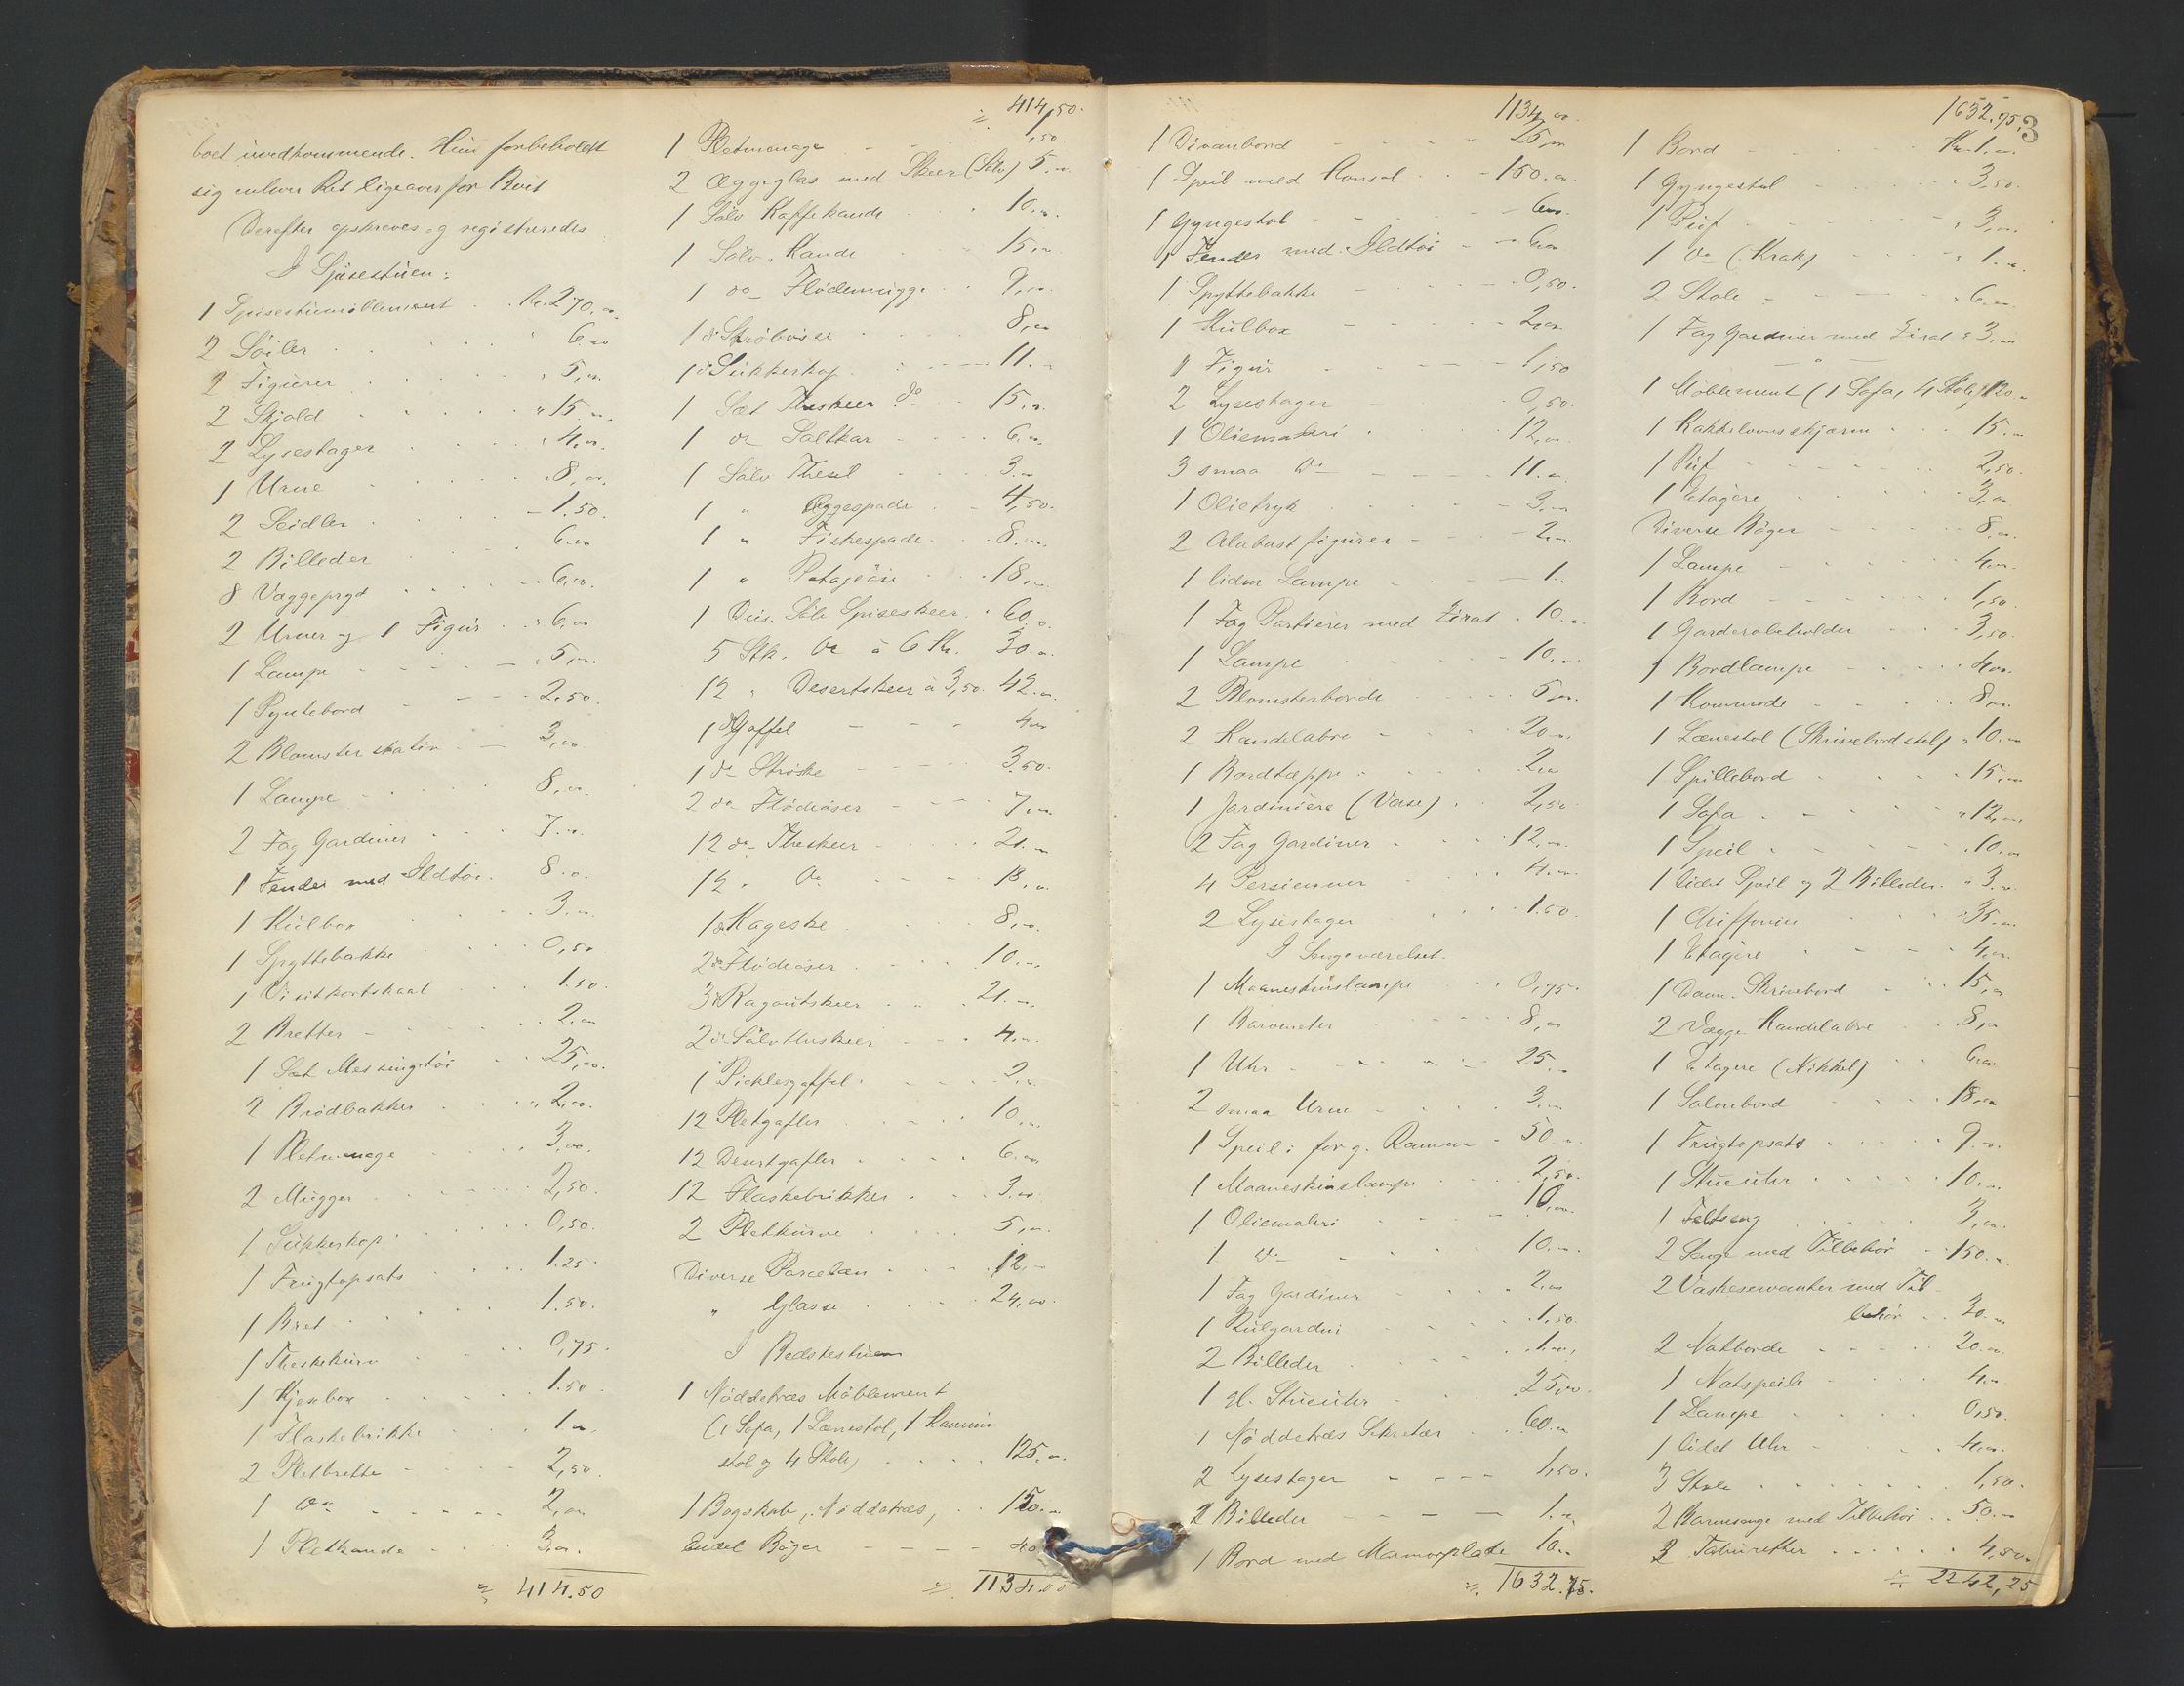 boet uvedkommende. Hun forbeholdt
sig enhver Ret ligeoverfor Boet
Derefter opskreves og registreredes
I Spisestuen:
1 Spisestuemöblement Kr. 270,00
2 Söiler 6,00
2 Figurer 5,00
2 Skjold 15,00
2 Lysestager 4,00
1 Urne 8,00
2 Seidler 1.50.
2 Billeder 6,00
8 Væggepryd 6,00
2 Urner og 1 Figur 6,00
1 Lampe 5,00
1 Pyntebord 2.50.
2 Blomsterstativ 3,00
1 Lampe 8,00
2 Fag Gardiner 7,00
1 Fender med Ildtöi 8.00
1 Kulbox 3.00
1 Spyttebakke 0,50
1 Visitkortskaal 1.50.
2 Bretter 2,00
1 Sæt Messingtöi 25,00
2 Brödbakker 2,00
1 Pletmenage 3,00
2 Mugger 2,50.
1 Sukkerkop 0,50.
1 Frugtopsats 1.25.
1 Bret 1.50.
1 Theskekurv 0,75.
1 Kjexbox 1.50.
1 Flaskebrikke 1,00
2 Pletbrette 2,50.
1 do 2,00
1 Pletkande 3,00
414.50
414,50.
1 Pletmenage 1,50.
2 Æggeglas med Skeer (Sölv) 5.00
1 Sölv Kaffekande 10,00
1 Sölv Kande 15,00
1 do Flödemugge 9,00
1 do Ströbösse 8,00
1 do Sukkerkop 11.00
1 Sæt Theskeer do 15,00
1 do Saltkar 6,00
1 Sölv Thesil 3,00
1 " Æggespade 4,50.
1 " Fiskespade 8.00
1 " Potageöse 18,00
1 Dus. Sölv Spiseskeer 60,00
5 Stk. do à 6 Kr. 30,00
12 " Desertskeer à 3,50. 42.00
1 do Gaffel 4,00
1 do Ströske 3.50.
2 do Flödeöser 7,00
12 do Theskeer 21.00
12 " do 18,00
1 do Kageske 8,00
2 do Flödeöser 10.00
3 do Ragoutskeer 21.00
2 do Sölvtheskeer 4.00
1 Picklesgaffel 2,00
12 Pletgafler 10,00
12 Desertgafler 6.00
12 Flaskebrikker 3,00
2 Pletkurve 5,00
Diverse Porcelæn 12,00
" Glasse 24,00.
I Bedstestuen
1 Nöddetræs Möblement
(1 Sofa, 1 Lænestol, 1 Kamin
stol og 4 Stole) 125,00
1 Bogskab, Nöddetræs, 150.00
Endel Böger 40
1134.00
1134,00
1 Divanbord 25,00
1 Speil med Konsol 150.00
1 Gyngestol 6,00
1 Fender med Ildtöi 6,00
1 Spyttebakke 0,50.
1 Kulbox 2,00
1 Figur 1,50
2 Lysestager 0,50.
1 Oliemaleri 12,00
3 smaa do 11.00
1 Olietryk 3,00
2 Alabast figurer 2,00
1 liden Lampe 1.00
1 Fag Portierer med Zirat 10.00
1 Lampe 10,00
2 Blomsterborde 5,00
2 Kandelabre 20,00
1 Bordtæppe 2,00
1 Jardiniere (Vase) 2,50
2 Fag Gardiner 12,00
4 Persienner 4.00
2 Lysestager 1.50.
I Sengeværelset.
1 Maaneskinslampe 0,75.
1 Barometer 8,00
1 Uhr 25.00
2 smaa Urne 3,00
1 Speil i forg. Ramme 50.00
1 Maaneskinslampe 2,50.
1 Oliemaleri 10,00
1 do 10.00
1 Fag Gardiner 2,00
1 Rulgardin 1,50.
2 Billeder 1,00,
1 gl. Stueuhr 25,00
1 Nöddetræs Sekretær 60.00
2 Lysestager 1,50.
2 Billeder 1.00
1 Bord med Marmorplade 10.00
1632.75.
1632.75.
3
1 Bord Kr. 1,00
1 Gyngestol 3,50.
1 Puf 3,00
1 do (Krak) 1.00
2 Stole 6,00
1 Fag Gardiner med Zirat 3,00
1 Möblement (1 Sofa, 4 Stole) 120.00
1 Kakkelovnsskjærm 15.00
1 Puf 2,50.
1 Etagere 3,00
Diverse Böger 8,00
1 Lampe 4,00
1 Bord 1,50.
1 Garderobeholder 3,50.
1 Bordlampe 4,00
1 Kommode 8,00
1 Lænestol (Skrivebordstol) 10.00
1 Spillebord 15,00
1 Sofa 12,00
1 Speil 10.00
1 lidet Speil og 2 Billeder 3.00
1 Chiffonier 35.00
1 Etagere 4,00
1 Dame Skrivebord 15,00
2 Vægge Kandelabre 8,00
1 Etagere (Nikkel) 6,00
1 Salonbord 18,00
1 Frugtopsats 9.00
1 Stueuhr 10.00
1 Feltseng 3,00
2 Senge med Tilbehör 150.00
2 Vaskeservanter med Til-
behör 30.00
2 Natborde 20.00
1 Natspeile 4.00
1 Lampe 0,50.
1 lidet Uhr 4,00
3 Stole 1,50.
2 Barnesenge med Tilbehör 50.00
3 Taburetter 4,50.
2242,25